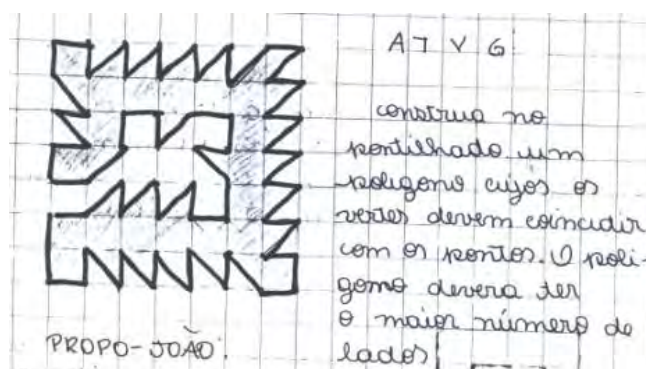 A T V G
construa no
pontilhado um
poligono cujos os
vertes devem coincidir
com os pontos. O poli-
gomo devera ter
o maior número de
lados
PROPO-JOÃO.